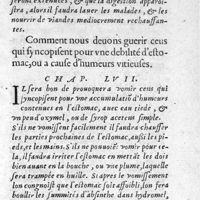 seront extenuees, & que la digestion apparoi-
stra, alors il faudra lauer les malades, & les
nourrir de viandes mediocrement rechauffan-
tes.
Comment nous deuons guerir ceus
qui syncopisent pour vne debilité d'esto-
mac, ou a cause d'humeurs vitieuses.
CHAP. LVII.
Il sera bon de prouoquer a vomir ceus qui
syncopisent pour vne accumulatiõ d'humeurs
contenues en l'estomac, auec eau tiede, &
vn peu d'oxymel, ou de syrop aceteus simple.
S'ils ne vomissent facilement il faudra chauffer
les parties prochaines de l'estomac, aussi les pi-
eds, et les mains. S'ils ne peuuent vomir pour ce-
la, il faudra irriter l'estomac en mettant les doits
bien auant en la bouche, ou vne plume, laquelle
sera trampée en huille. Si apres le vomissement
lon congnoist que l'estomac soit affoibli, lon fera
boullir les summités d'absinthe dans hydromel,